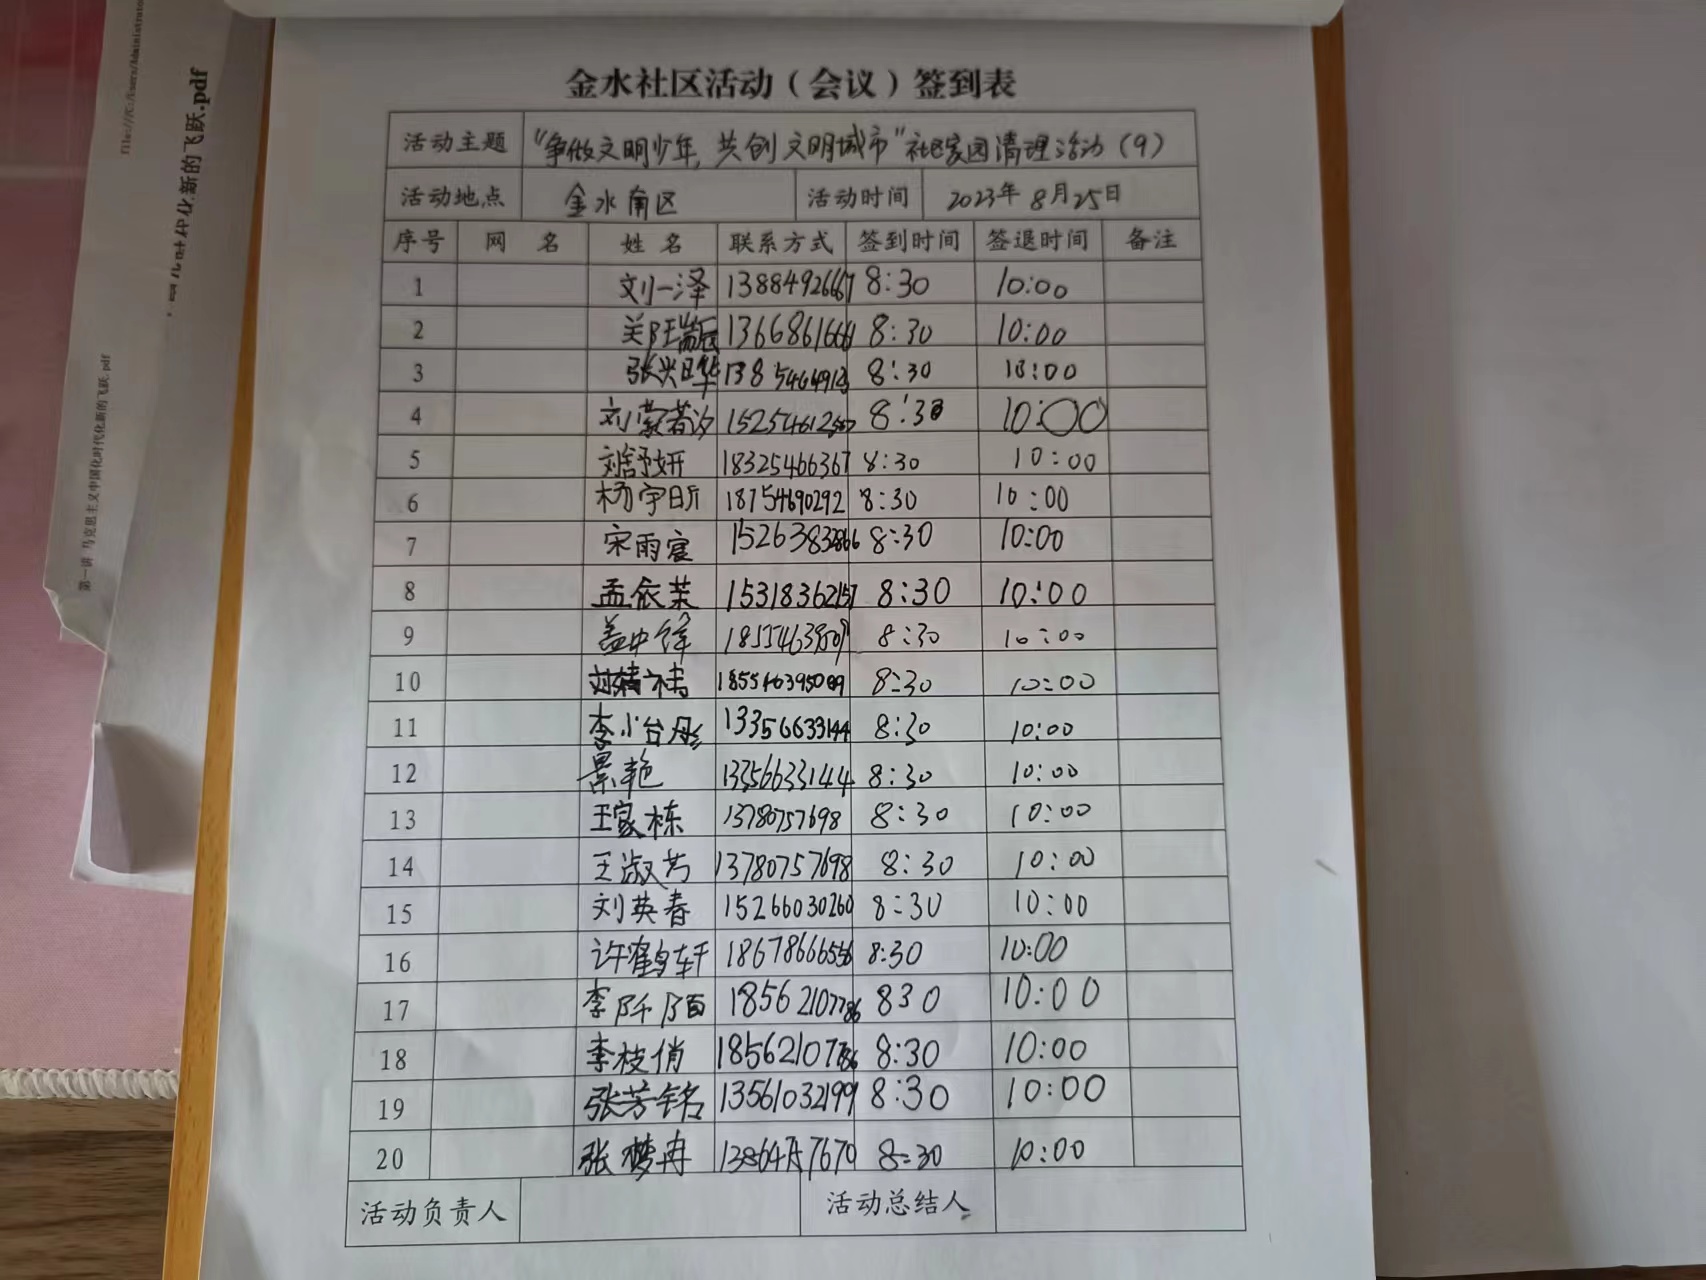 金水社区活动（会议）签到表
活动主题 "争做文明少年,共创文明城市"社区家园清理活动（9）
活动地点 金水南区 活动时间 2023年8月25日
序号 网 名 姓 名 联系方式 签到时间 签退时间 备注
1 刘一泽 13884926667 8:30 10:00
2 8:30 10:00
3 8:30 10:00
4 8:30 10:00
5 刘舒妍 18325466367 8:30 10:00
6 杨宇昕 18754690292 8:30 10:00
7 宋雨宸 8:30 10:00
8 孟依茉 15318362157 8:30 10:00
9 盖中锋 8:30 10:00
10 8:30 10:00
11 13356633144 8:30 10:00
12 景艳 13356633144 8:30 10:00
13 王家栋 13780757698 8:30 10:00
14 王淑芳 13780757698 8:30 10:00
15 刘英春 15266030260 8:30 10:00
16 许鹤轩 18678666556 8:30 10:00
17 李阡陌 18562107786 830 10:00
18 李枝俏 18562107786 8:30 10:00
19 张芳铭 13561032199 8:30 10:00
20 张梦冉 8:30 10:00
活动负责人 活动总结人
第一讲 马克思主义中国化时代化新的飞跃.pdf
file:///C:/Users/Administrator
化新的飞跃.pdf